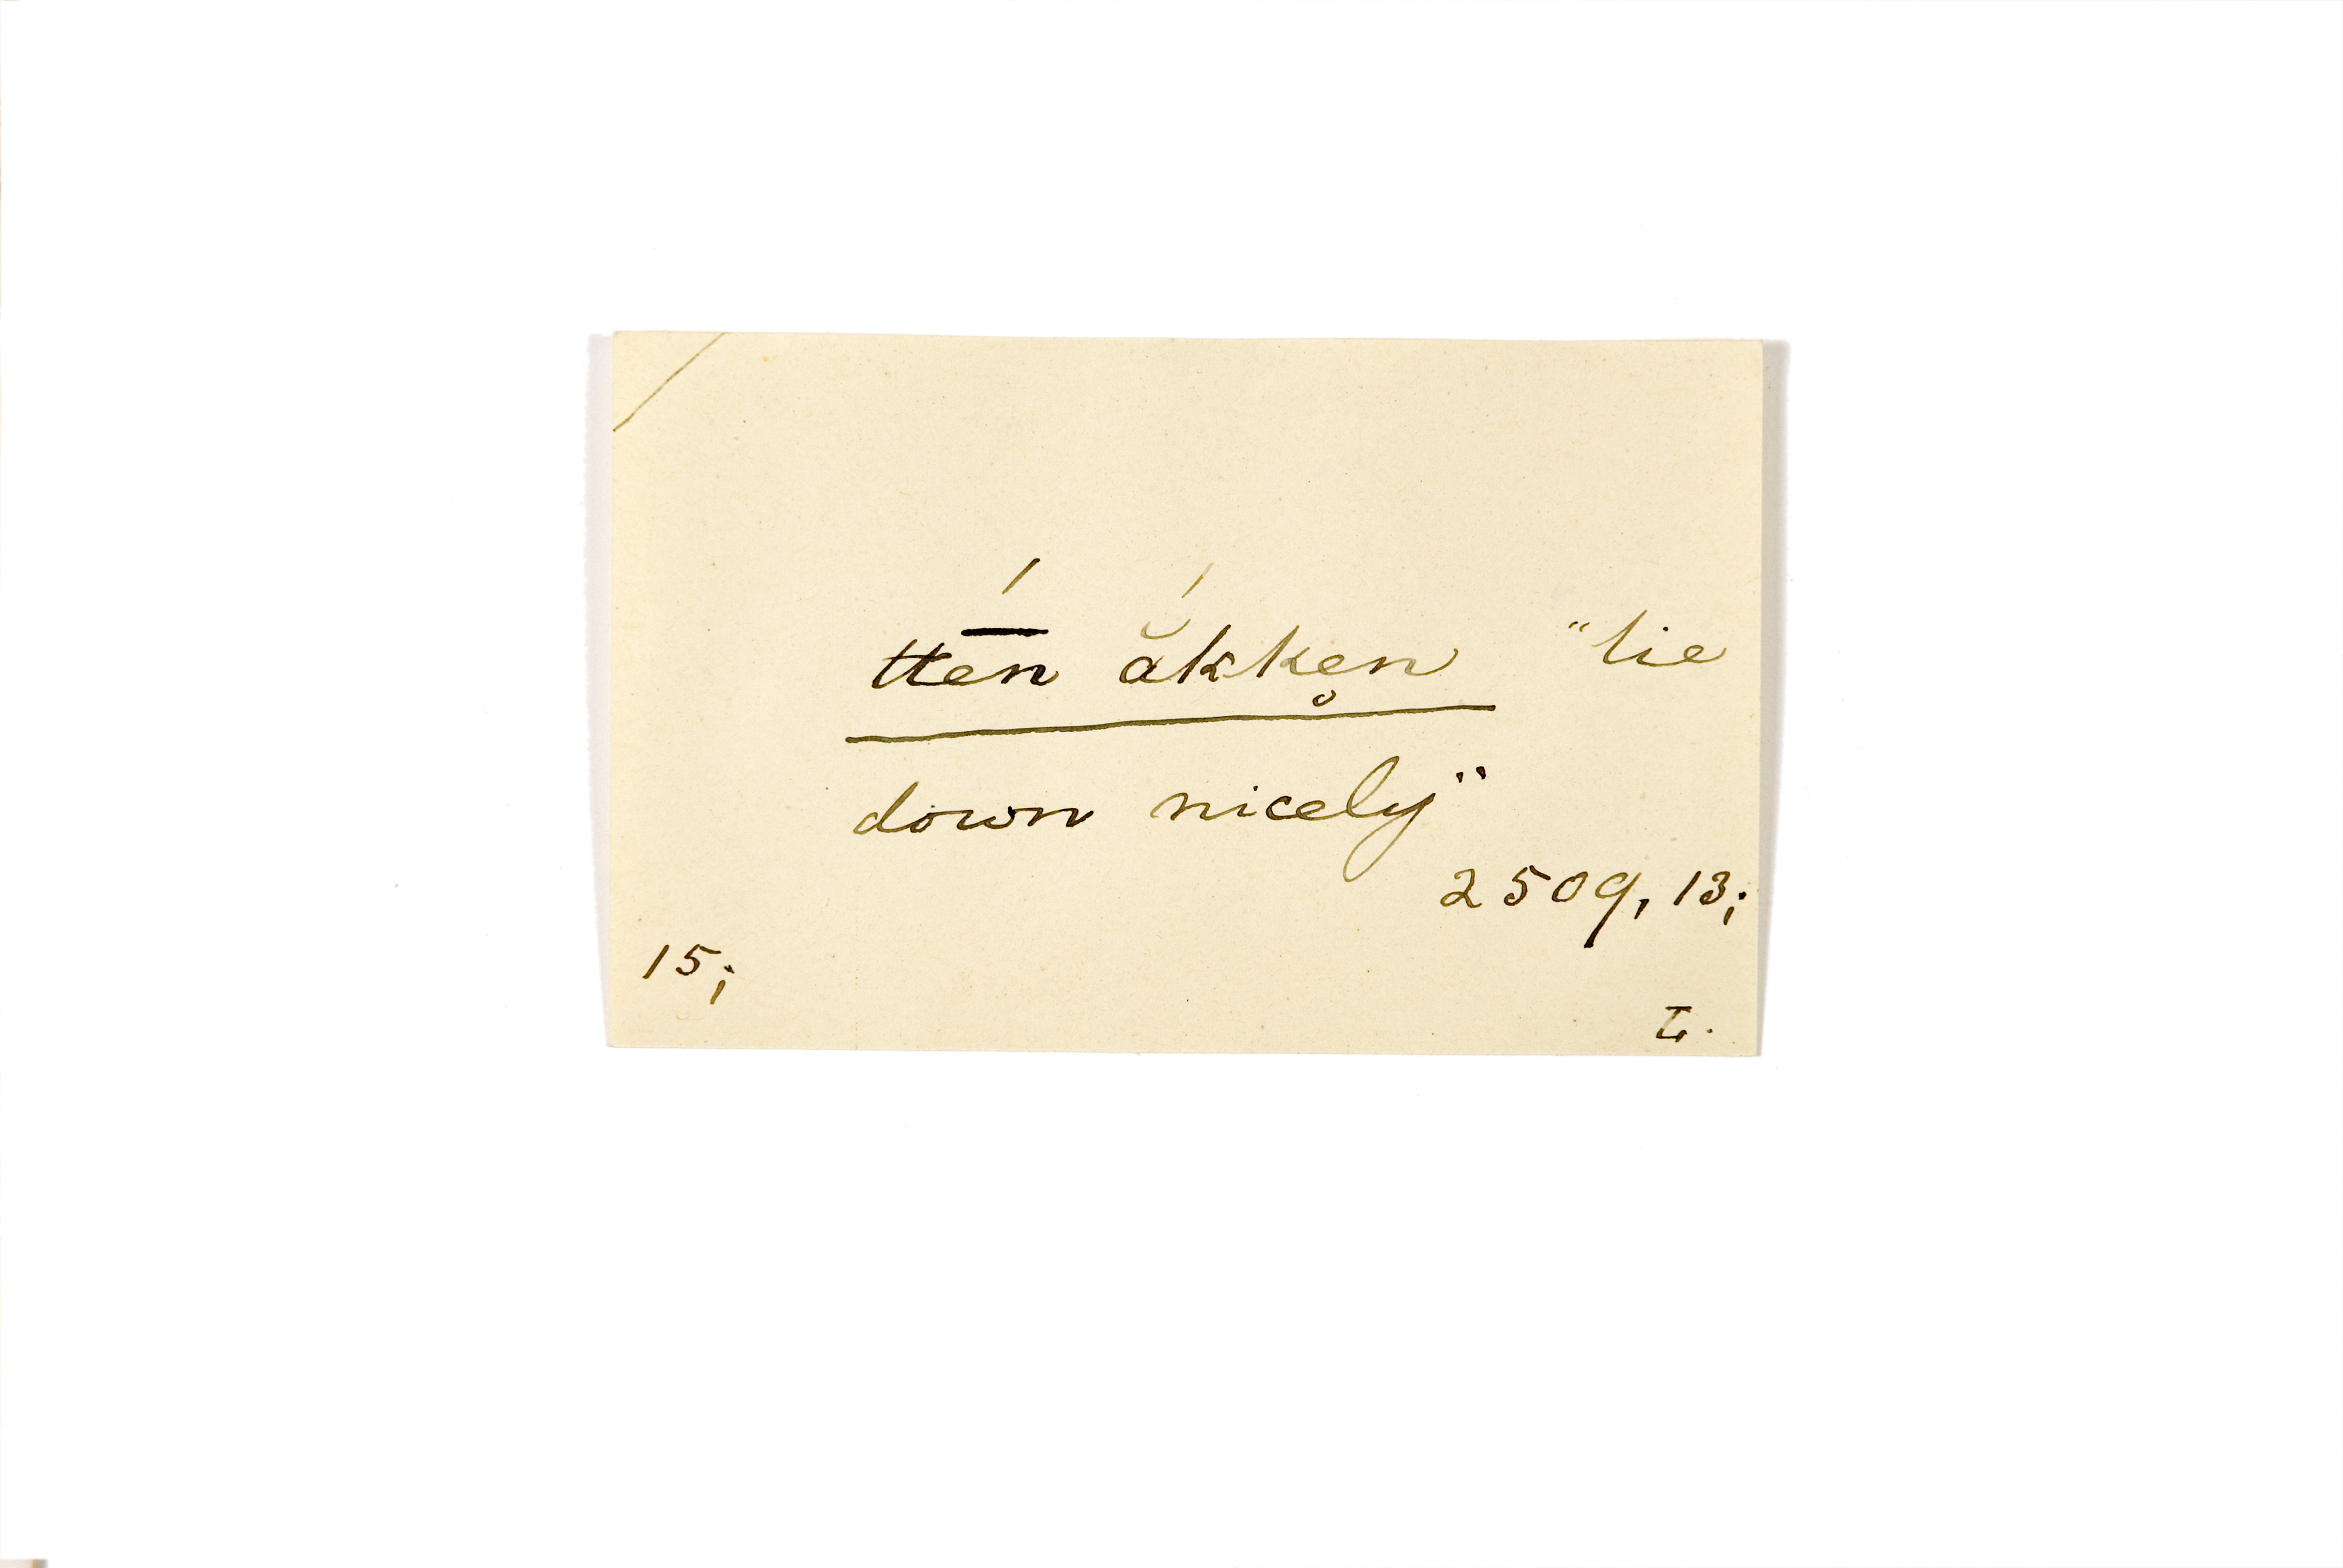 ttḗn ắkke̥n "lie
down nicely"
2509, 13;
15;
L.